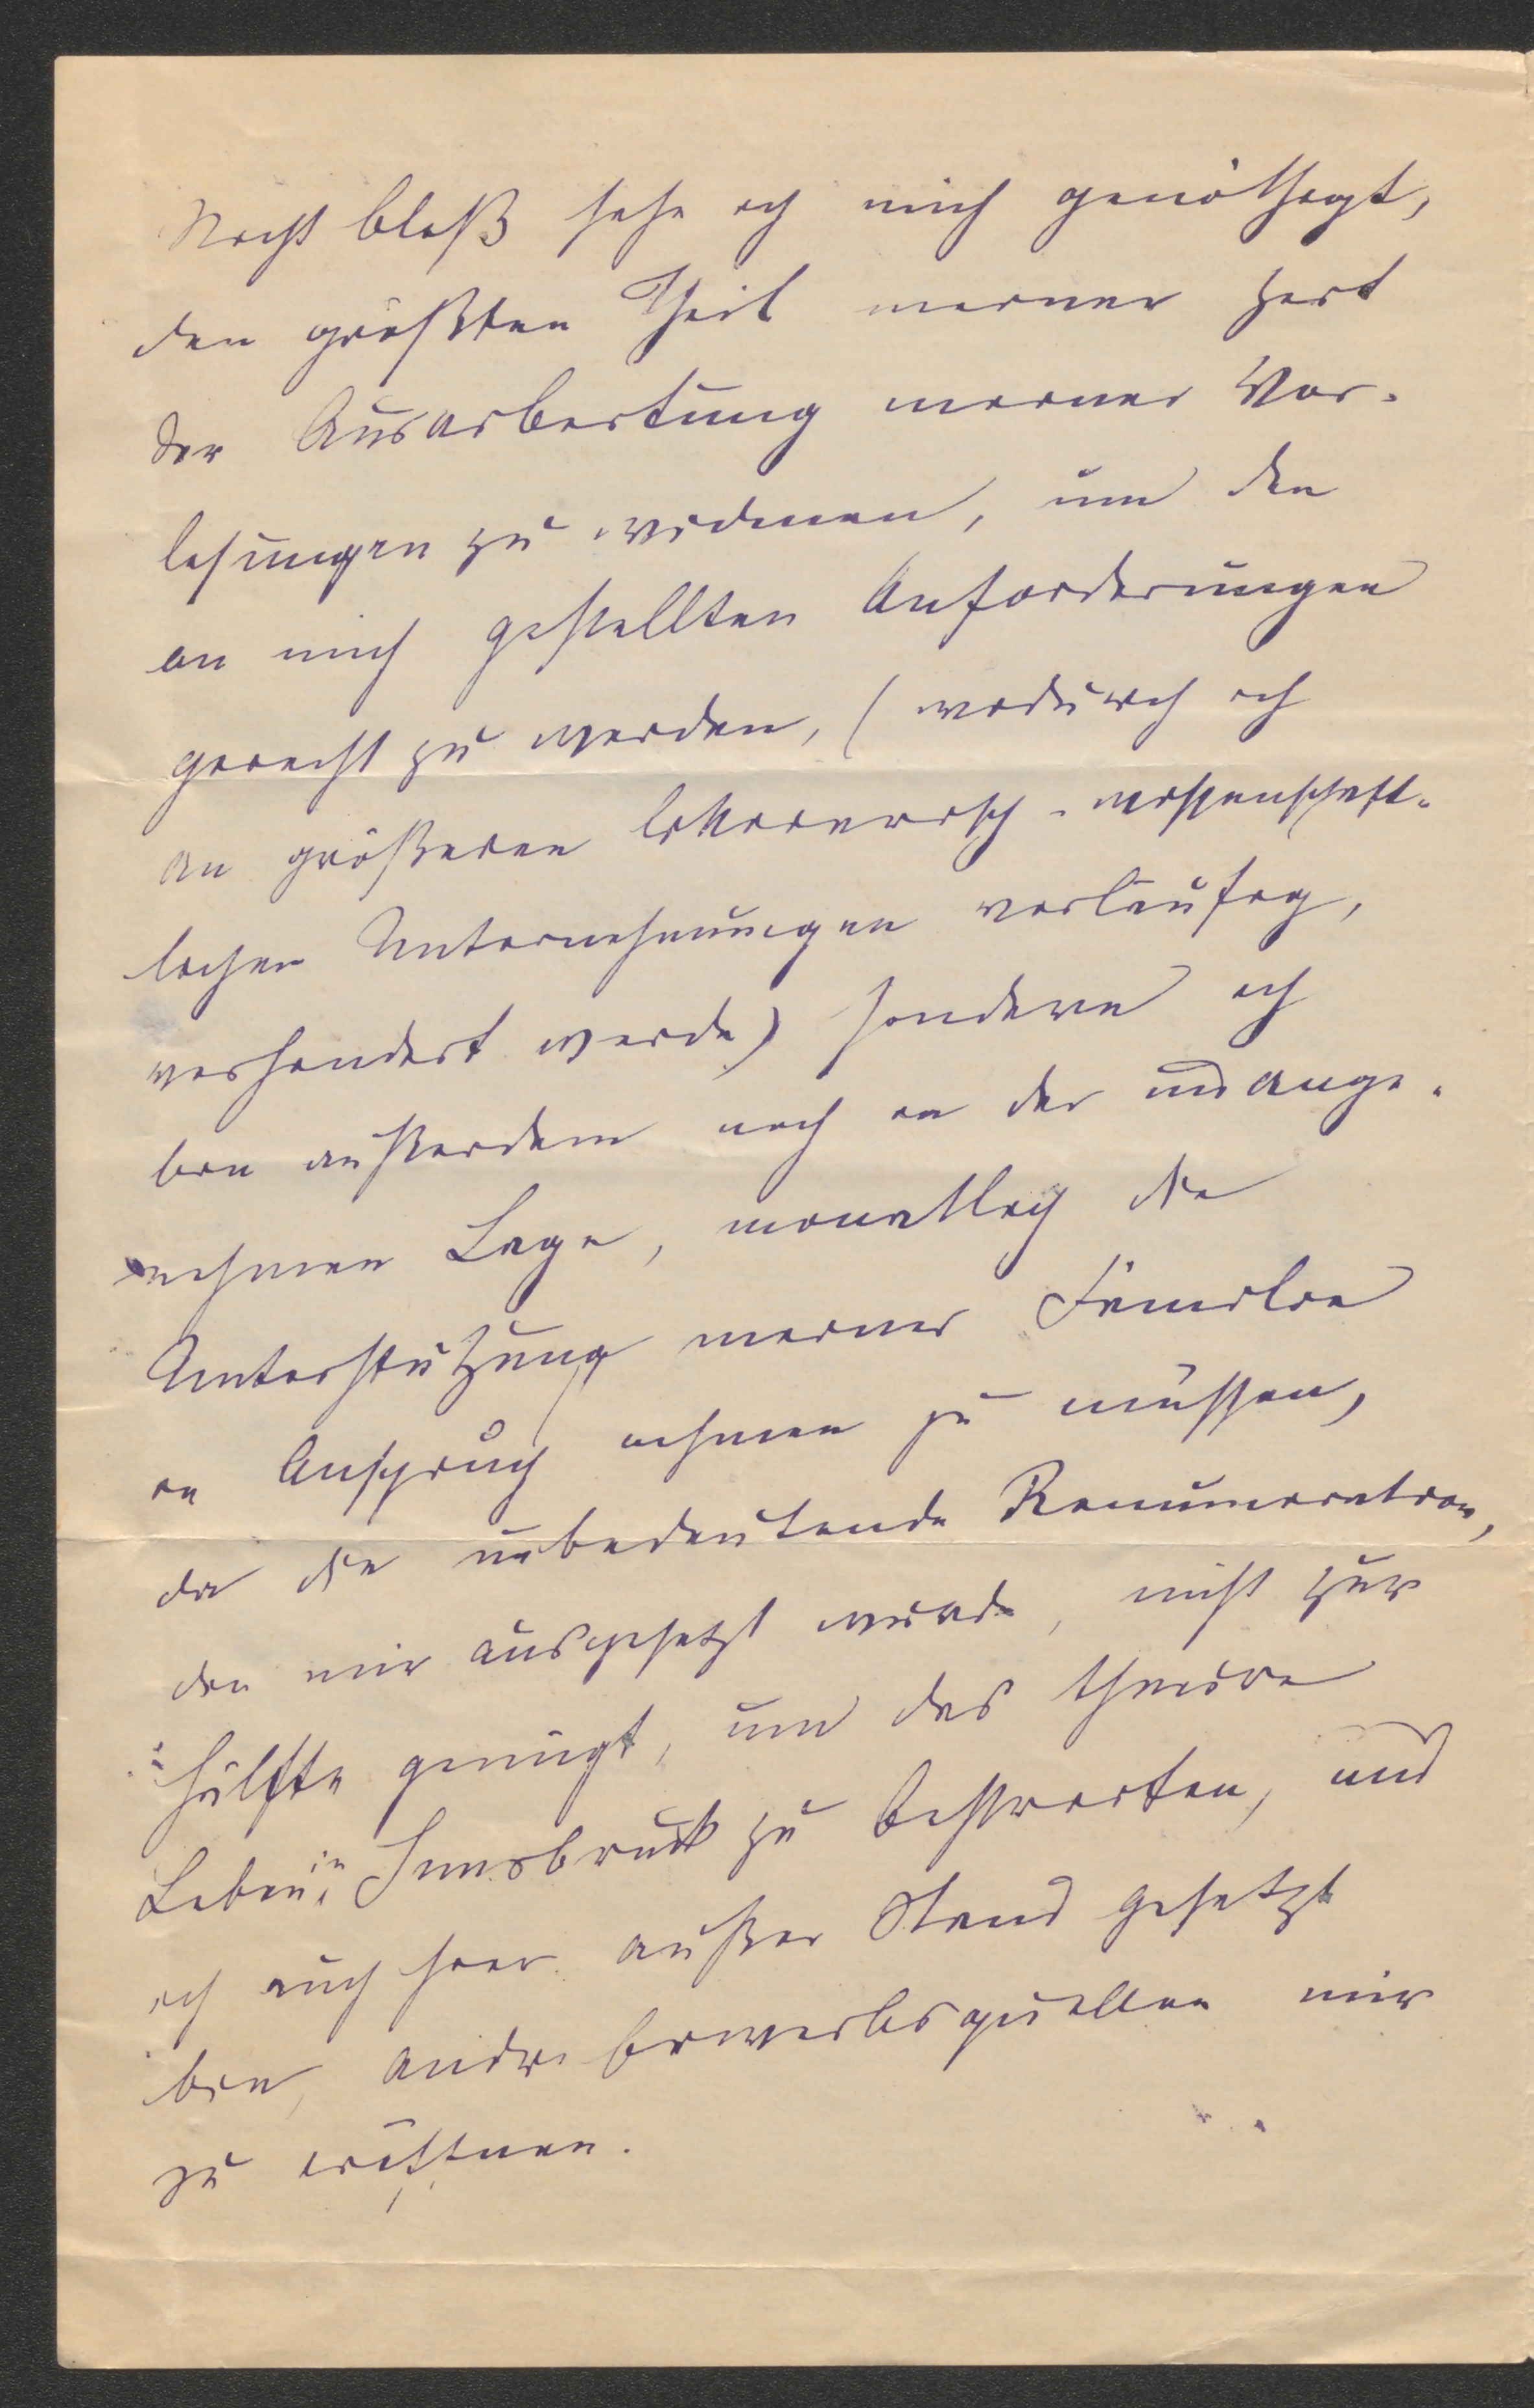 Nicht bloß sehe ich mich genöthigt,
den größten Theil meiner Zeit
der Ausarbeitung meiner Vor-
lesungen zu widmen, um den
an mich gestellten Anforderungen
gerecht zu werden, (wodurch ich
an größeren litterarisch-wissenschaft-
lichen Unternehmungen vorläufig,
verhindert werde) sondern ich
bin außerdem noch in der unange-
nehmen Lage, monatlich die
Unterstützung meiner Familie
in Anspruch nehmen zu müssen,
da die unbedeutende Renumeration,
die mir ausgesetzt wurde, nicht zur
Hälfte genügt, um das theure
Leben in Innsbruck zu bestreiten, und
ich auch hier außer Stand gesetzt
bin, andre Erwerbsquellen mir
zu eröffnen.